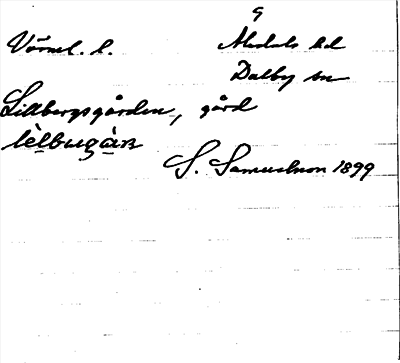 9
Värml. l. Älvdals hd
Dalby sn
Lillbergsgården, gård
lèlbugàṇ
S. Samuelsson 1899